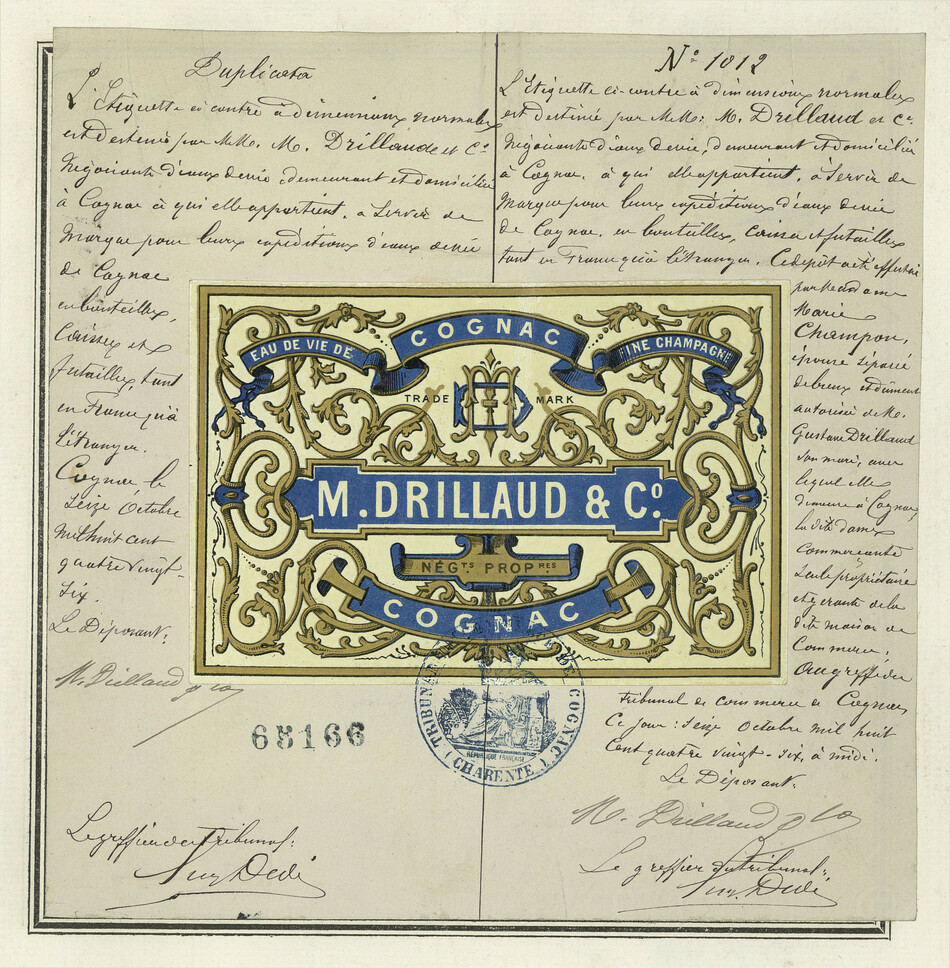 Duplicata
L'Etiquette ci-contre à dimensions normales
est destinée par MM. M. Drillaud et Cie
Négociants d'eaux de vie, demeurant et domiciliés
à Cognac à qui elle appartient, à servir de
Marque pour leurs expéditions d'eaux de vie
de Cognac
en bouteilles,
Caisses et
futailles, tant
en France qu'à
l'étranger.
Cognac, le
Seize Octobre
mil huit cent
quatre vingt-
six.
Le Déposant:
M. Drillaud & Co
65166
Le greffier du tribunal:
No 1012
L'Etiquette ci-contre à dimensions normales
est destinée par MM: M. Drillaud et Cie
Négociants d'eaux de vie, demeurant et domiciliés
à Cognac, à qui elle appartient, à servir de
Marque pour leurs expéditions d'eaux de vie
de Cognac, en bouteilles, caisses et futailles
tant en France qu'à l'étranger. Ce dépôt a été effectué
par Madame
Marie
Champon,
épouse séparée
de biens et dûment
autorisée de M.
Gustave Drillaud
son mari, avec
lequel elle
demeure à Cognac,
la dite dame
Commerçante
Seule propriétaire
et gérante de la
dite maison de
Commerce,
Au greffe du
tribunal de commerce de Cognac
Ce jour: Seize Octobre mil huit
Cent quatre vingt-six, à midi.
Le Déposant:
M. Drillaud & Co
Le greffier du tribunal:
COGNAC
EAU DE VIE DE
FINE CHAMPAGNE
TRADE MARK
M. DRILLAUD & Co.
NÉGTS PROPRES
COGNAC
TRIBUNAL DE COMMERCE DE COGNAC
RÉPUBLIQUE FRANÇAISE
(CHARENTE)